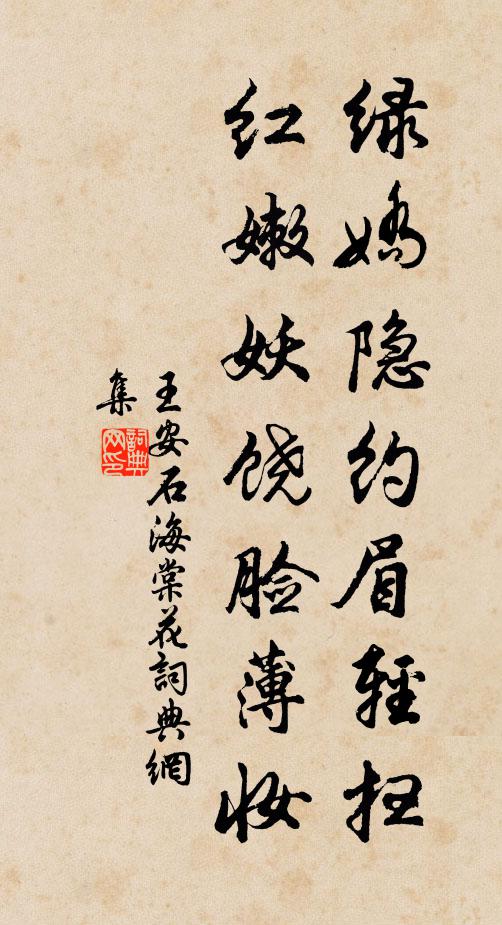 绿娇隐约眉轻扫
红嫩妖饶脸薄妆
王安石海棠花詞典網
集
詞典
网印